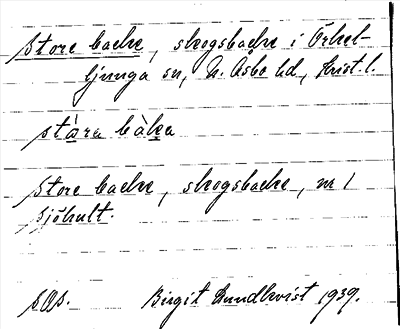 Store backe, skogsbacke i Örkel-
ljunga sn, N. Åsbo hd, Krist. l.
stàra bàka
Store backe, skogsbacke, m /
Sjöhult.
Birgit Lundkvist 1939.